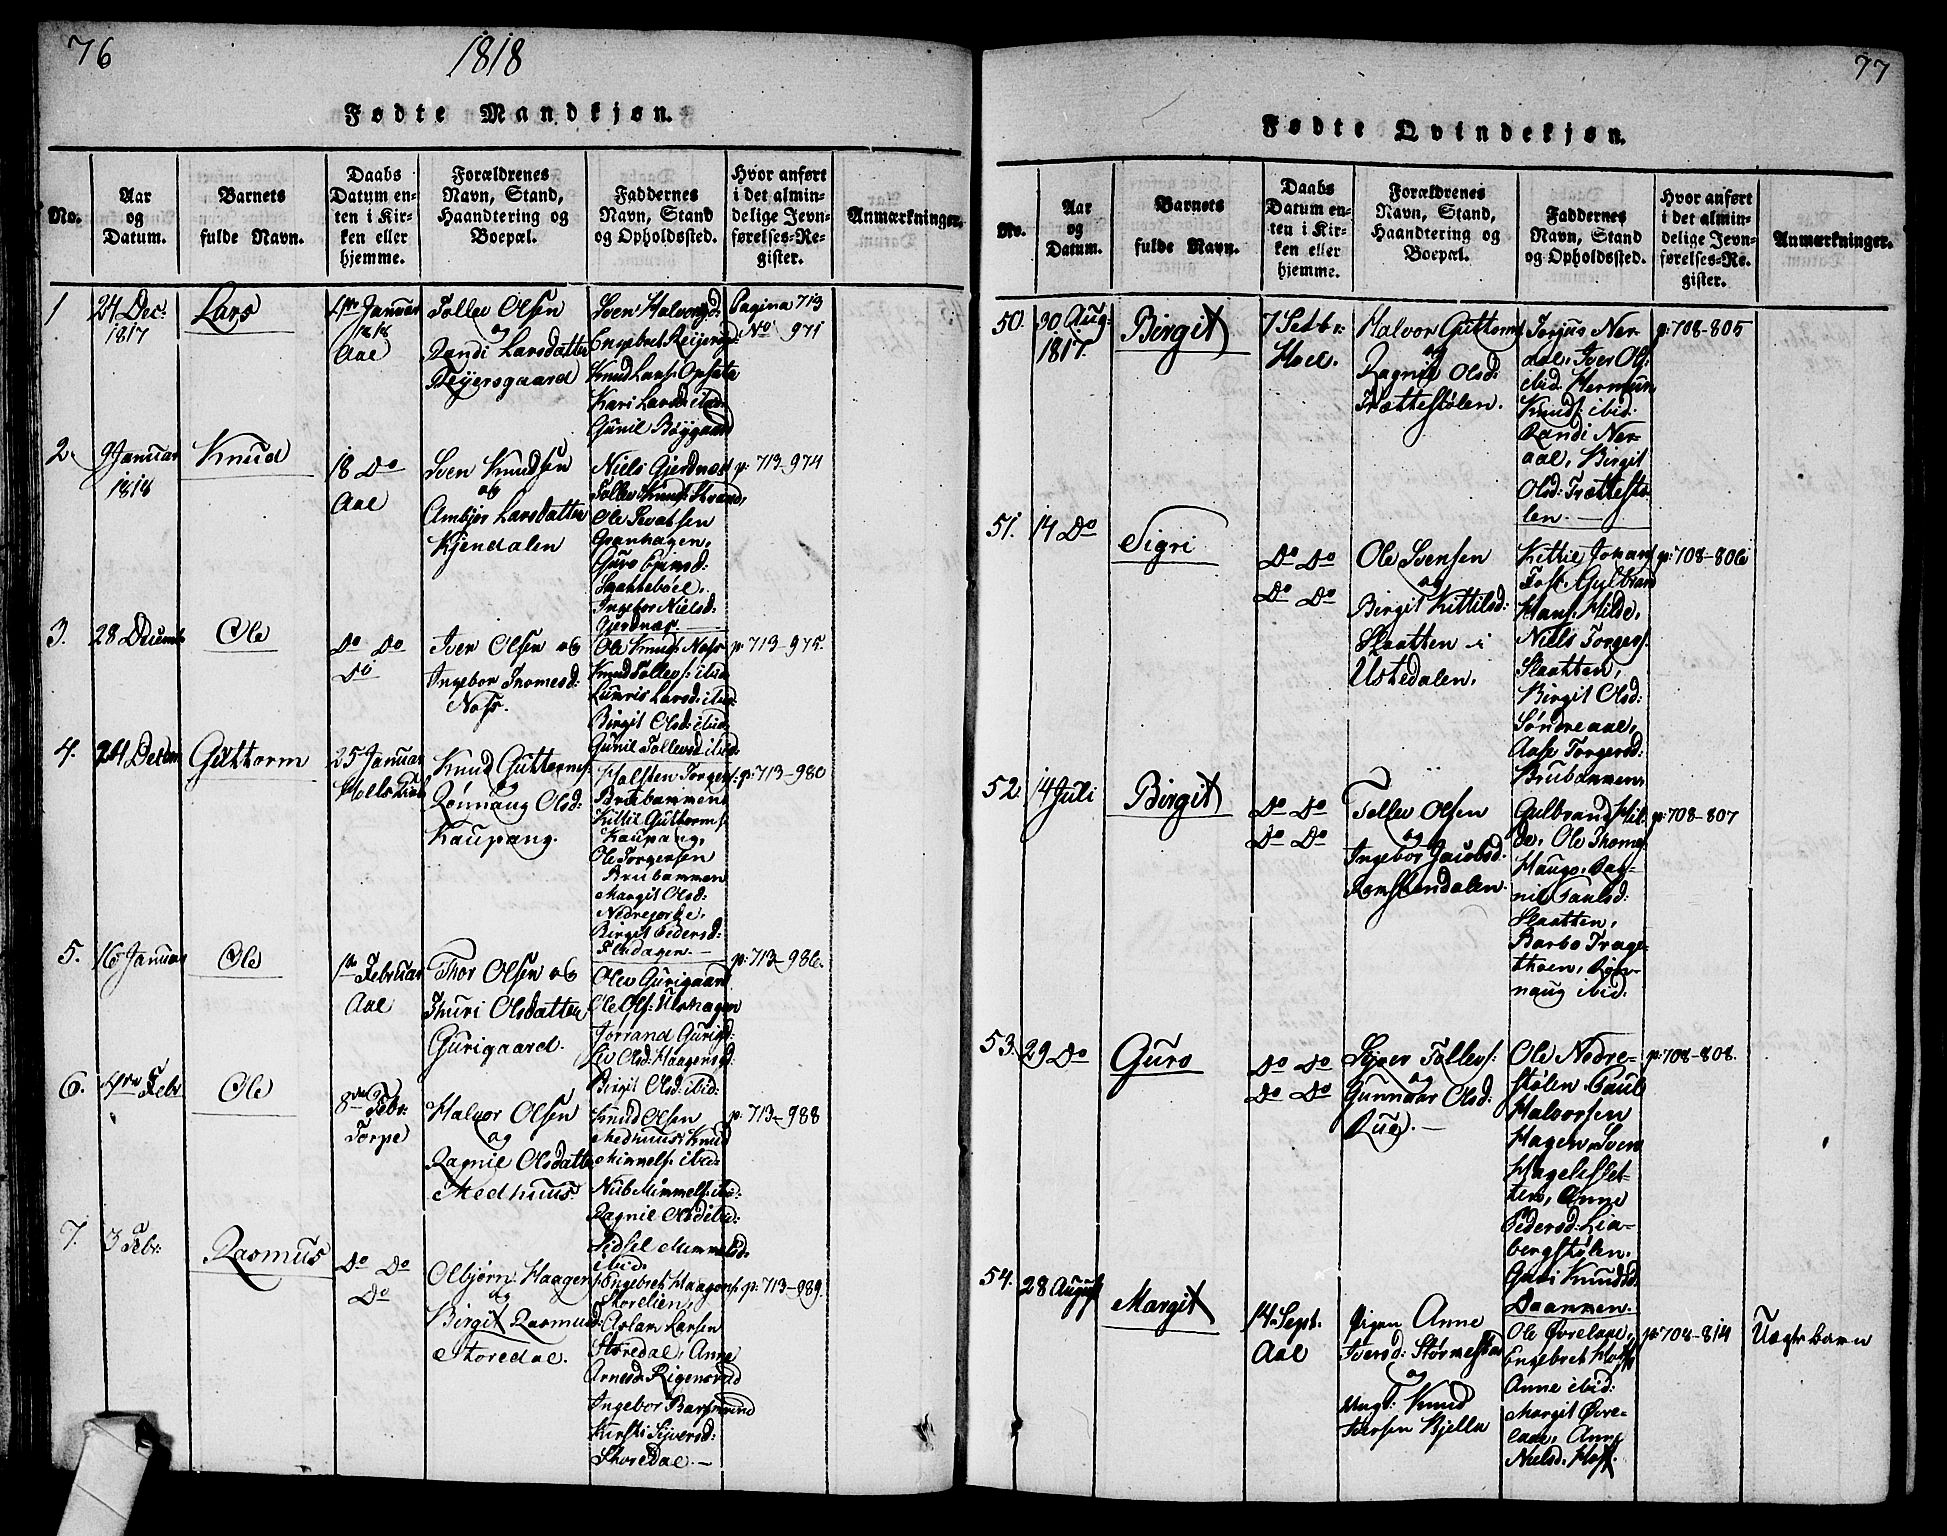 76
1818
Fødte Mandkjøn.
No.
Aar
og
Datum.
Barnets
fulde Navn.
Daabs
Datum en-
ten i Kir-
ken eller
hjemme.
Forældrenes
Navn, Stand,
Haandtering og
Boepæl.
Faddernes
Navn, Stand
og Opholdssted.
Hvor anført
i det almin-
delige Jevn-
førelses-Re-
gister.
Anmærkninger.
1
24 Dec:
1817
Lars
1ste Januar
1818
Aal
Tollev Olsen
og
Randi Larsdatter
Reijersgaard
Sven Halvorsd:
Engebret Reijersg:
Knud Lars: Opsata
Kari Larsd: ibid:
Gunil Bøygaard
Pagina 713
No 971
2.
9 Januar
1818
Knud
18 Do
Aal
Sven Knudsen
og
Ambjør Larsdatter
Kjendalen
Niels Gjerdnæs
Tollev Knuds: Strand,
Ole Sevatsen
Granhagen,
Guro
Ingebor Nielsd:
Gjerdnæs.
p: 713-974
3.
28 Decemb:
Ole
Do Do
Do
Iver Olsen og
Ingebor Thomesd:
Næss.
Ole Knuds: Næss
Knud Tollevs: ibid:
Larsd: ibid:
Birgit Olsd: ibid:
Gunil Tollevsd: ibid:
p: 713-975.
4.
24 Decem
Guttorm
25 Januar
Knud Guttorms:
og
Rønnaug Olsd:
Kaupang.
Halsten Torgers:
Brubammen
Kittil Guttorms:
Kaupang,
Ole Torgersen
Brubammen
Margit Olsd:
Nedrejorde,
Birgit Pedersd:
p: 713-980
5.
16 Januar
Ole
1ste Februar
Aal
Thor Olsen og
Thuri Olsdatter
Gurigaard.
Olev Gurigaard
Ole Ols:
Jorrand Gurigd:
Liv Olsd: Haagensgd:
Birgit Olsd: ibid:
p: 713-986.
6.
4de Febr
Ole
8de Febr:
Torpe
Halvor Olsen
og
Ragnil Olsdatter
Medhuus.
Knud Olsen
Medhuus: Knud
Himmels: ibid:
Himmels: ibid:
Ragnil ibid:
Sidsel
ibid:
p: 713-988
7.
3 Febr:
Rasmus
Do Do
Do
Olbjørn Haagens:
og
Birgit Rasmusd:
Storedal.
Engebret Haagens:
Storelien,
Aslak Larsen
Storedal, Anne
Arnesd:
Ingebor
Kirsti Sijversd:
Storedal.
p: 713-989.
77
Fødte Qvindekjøn.
No.
Aar
og
Datum.
Barnets
fulde Navn.
Daabs
Datum en-
ten i Kir-
ken eller
hjemme.
Forældrenes
Navn, Stand,
Haandtering og
Boepæl.
Faddernes
Navn, Stand
og Opholdssted.
Hvor anført
i det almin-
delige Jevn-
førelses-Re-
gister.
Anmærkninger.
50.
30 Aug:
1817.
Birgit
7 Setbr:
Hoel.
Halvor Guttorms
og
Ragnil Olsd:
Trættestølen.
Torjus Ner-
aal, Iver Ols:
ibid. Hermun
Knuds: ibid:
Randi Ner-
aal, Birgit
Olsd: Trættestø-
len.
p: 708-805
51.
14 Do
Sigri
Do Do
Do Do
Ole Svensen
og
Birgit Kittilsd:
Slaatten i
Ustedalen,
Kittil Johans
Gulbrand
Hans: Hilde,
Niels Torgers:
Slaatten,
Birgit Olsd:
Søndreaal,
Aase Torgersd:
Brubammen
p: 708-806
52.
14 Juli
Birgit
Do Do
Do Do
Tollev Olsen
og
Ingebor Jacobsd:
Gulbrand Hil-
de, Ole Thomes:
Haugo, Rag-
nil Paulsd:
Slaatten,
Barbo Trage-
thoen, Røn-
naug ibid:
p: 708-807
53.
29 Do
Guro
Do Do
Do Do
Sijver Tollevs:
og
Gunnaar Olsd:
Rue.
Ole Nedre-
stølen Paul
Halvorsen
Hagen, Sven
Hagelislet-
ten, Anne
Pedersd: Lia-
bergstølen,
Guri Knudsd:
Daammen.
p: 708-808.
54.
28 August
Margit
14 Sept.
Aal
Pigen Anne
Iversd: Stormestøe
og
Ungk: Knud
Iversen Kjella
Ole Øvrelaae,
Engebret Hoff
Anne ibid:
Margit Øvre-
laae, Anne
Nielsd: Hoff.
p: 708-814
Uægte barn